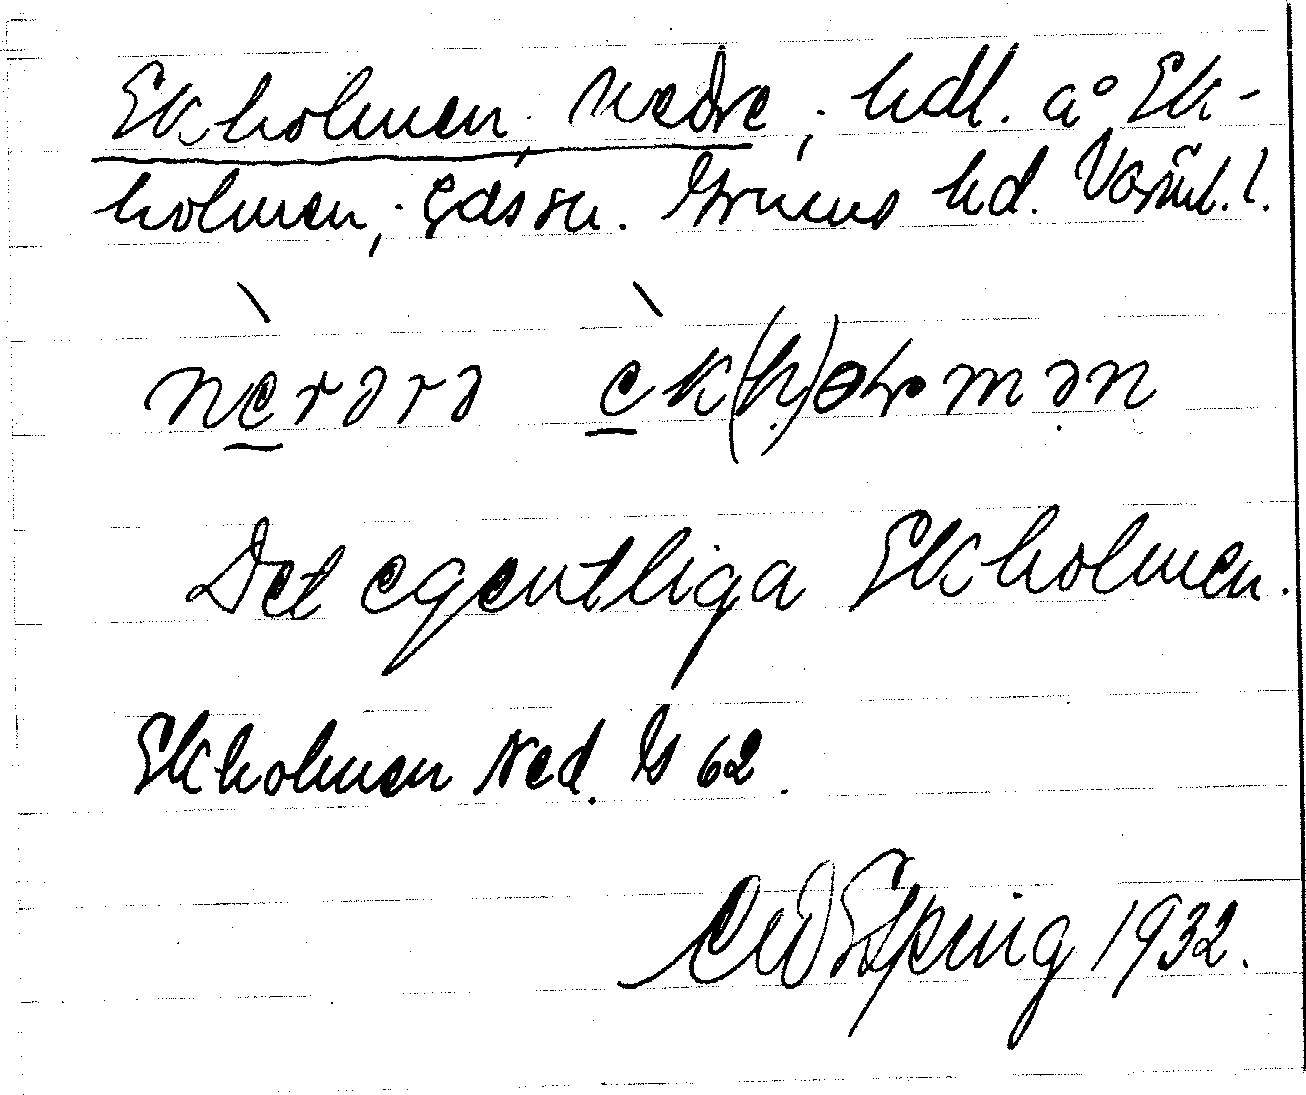 Ekholmen, Nedre, hdl. å Ek-
holmen, Gåssn. Grums hd. Värml. l.
nèrərə èk(h)ɵɽmən
Det egentliga Ekholmen.
Ekholmen Ned. G 62.
1932.